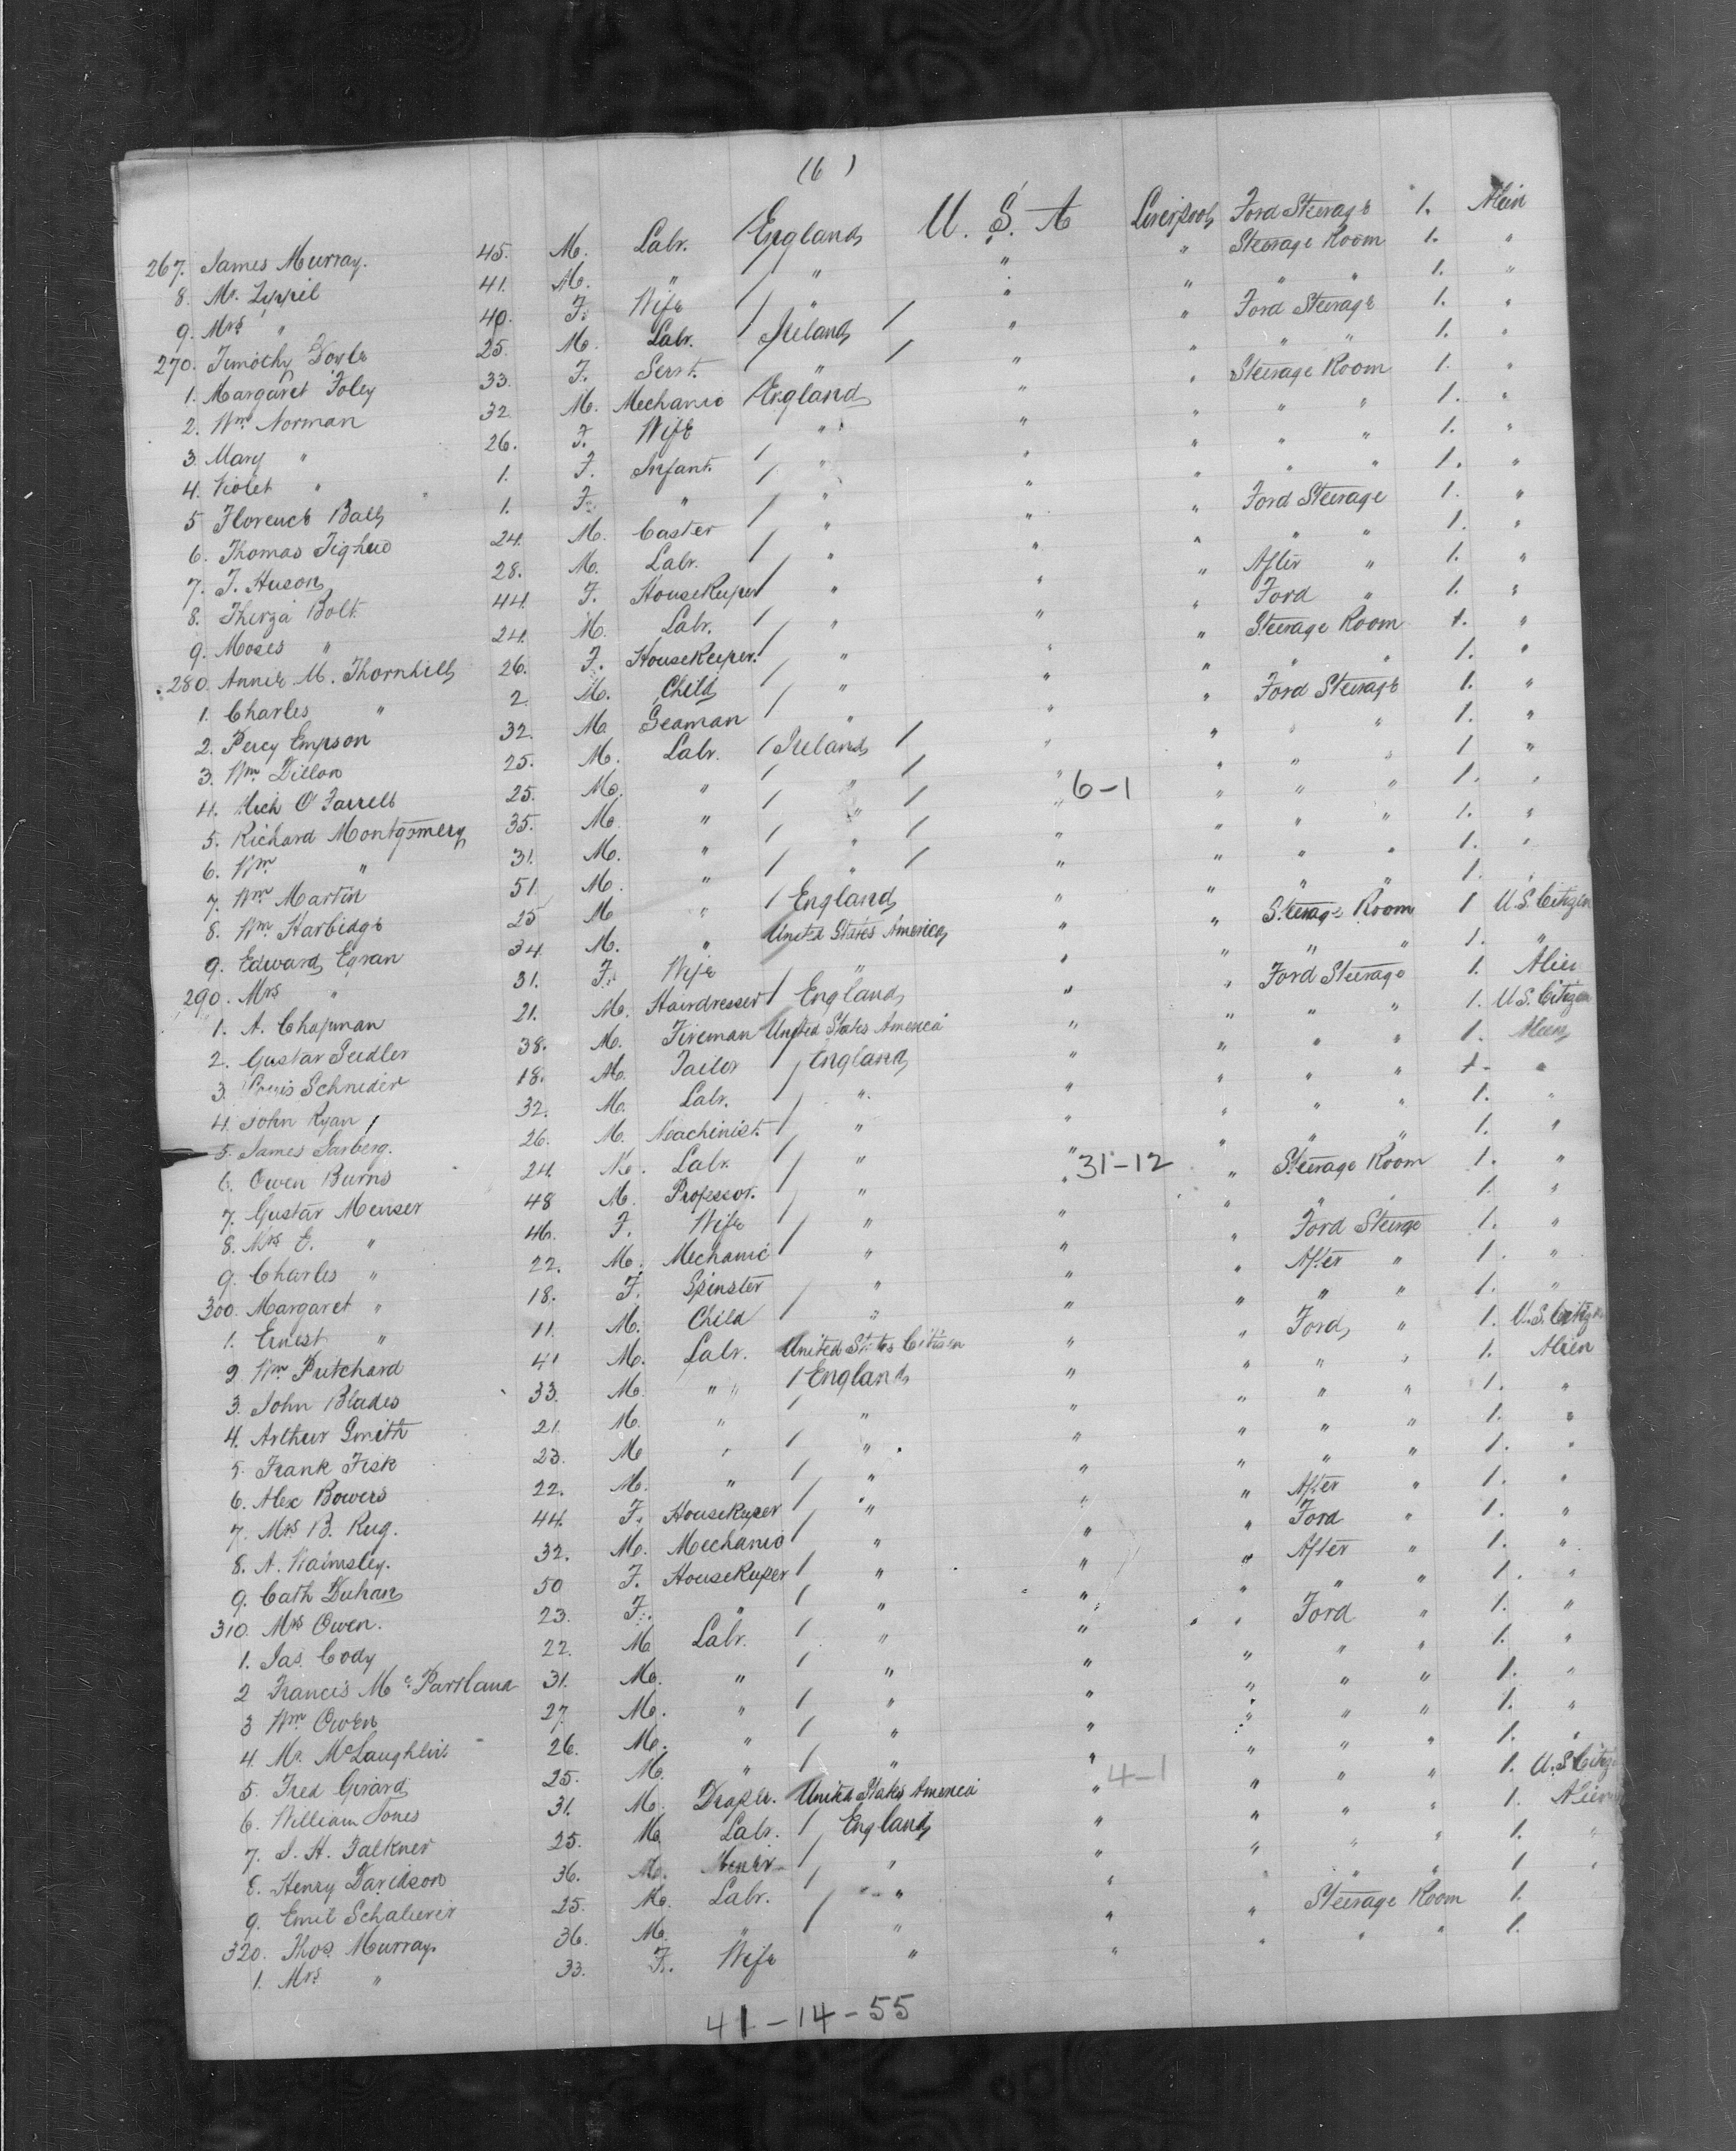 (6)
267. James Murray. 45. M. Labr. England U. S. A Liverpool Ford Steerage 1. Alien
8. Mr. 41. M. " / " " " Steerage Room 1. "
9. Mrs " 40. F. Wife / " " " " " 1. "
270. Timothy Doyle 25. M. Labr. / Ireland / " " Ford Steerage 1. "
1. Margaret Foley 33. F. Servt. " / " " " " 1. "
2. Wm Norman 32 M. Mechanic England " " Steerage Room 1. "
3. Mary " 26. F. Wife " " " " " 1. "
4. Violet " 1. F. Infant. / " " " " " 1. "
5 Florence Ball 1. F. " / " " " " " 1. "
6. Thomas 24. M. Caster / " " " Ford Steerage 1. "
7. J. Huson 28. M. Labr. / " " " " " 1. "
8. Thirza Bolt 44. F. HouseKeeper / " " " After " 1. "
9. Moses " 24. M. Labr. / " " " Ford " 1. "
280. Annie M. Thornhill 26. F. HouseKeeper. / " " " Steerage Room 1. "
1. Charles " 2. M. Child / " " " " " 1. "
2. Percy Empson 32. M. Seaman / " " " Ford Steerage 1. "
3. Wm Dillon 25. M. Labr. / Ireland / " " " " 1. "
4. Mich O'Farrell 25. M. " / " / " 6-1 " " " 1 "
5. Richard Montgomery 35. M. " / " / " " " " 1. "
6. Wm " 31. M. " / " / " " " " 1. "
7. Wm Martin 51 M. " / " / " " " " 1. "
8. Wm Harbidge 25 M " / England " " " " 1. "
9. Edward Egran 34. M. " United States America " " Steerage Room 1 U.S. Citizen
290. Mrs " 31. F. Wife " " " " " 1. "
1. A. Chapman 21. M. Hairdresser / England " " Ford Steerage 1. Alien
2. Gustav Seidler 38. M. Fireman United States America " " " " 1. U.S. Citizen
3. Louis Schneider 18. M. Tailor / England " " " " 1. Alien
4. John Ryan 32. M. Labr. / " " " " " 1. "
5. James Sarberg. 26. M. Machinist. / " " " " " 1. "
6. Owen Burns 24. M. Labr. / " " 31-12 " " " 1. "
7. Gustav Menser 48 M. Professor. / " " " Steerage Room 1. "
8. Mrs E. " 46. F. Wife / " " " " " 1. "
9. Charles " 22. M. Mechanic / " " " Ford Steerage 1. "
300. Margaret " 18. F. Spinster / " " " After " 1. "
1. Ernest " 11. M. Child / " " " " " 1. "
2 Wm Pritchard 41 M. Labr. United States Citizen " " Ford " 1. U.S. Citizen
3. John Blades 33. M. " " / England " " " " 1. Alien
4. Arthur Smith 21. M. " / " " " " " 1. "
5. Frank Fisk 23. M " / " " " " " 1. "
6. Alex Bowers 22. M. " / " " " " " 1. "
7. Mrs B. Rug. 44. F. HouseKeeper / " " " After " 1. "
8. A. Walmsley. 32. M. Mechanic / " " " Ford " 1. "
9. Cath Duhan 50 F. HouseKeeper / " " " After " 1. "
310. Mrs Owen. 23. F. " / " " " " " 1. "
1. Jas. Cody 22. M Labr. / " " " Ford " 1. "
2 Francis McPartland 31. M. " / " " " " " 1. "
3 Wm Owen 27. M. " / " " " " " 1. "
4. Mr. McLaughlin 26. M. " / " " " " " 1. "
5. Fred Girard 25. M. " / " " 4-1 " " " 1. "
6. William Jones 31. M. Draper. United States America " " " " 1. U.S Citizen
7. J. H. Falkner 25. M. Labr. / England " " " " 1. Alien
8. Henry Davidson 36. M. Miner / " " " " " 1. "
9. Emil 25. M. Labr. / " " " " " 1 "
320. Thos. Murray. 36. M. " / " " " Steerage Room 1.
1. Mrs " 33. F. Wife " " " " " 1.
41-14-55